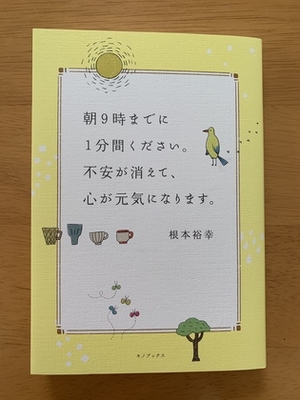 朝9時までに
1分間ください。
不安が消えて、
心が元気になります。
根本裕幸
キノブックス